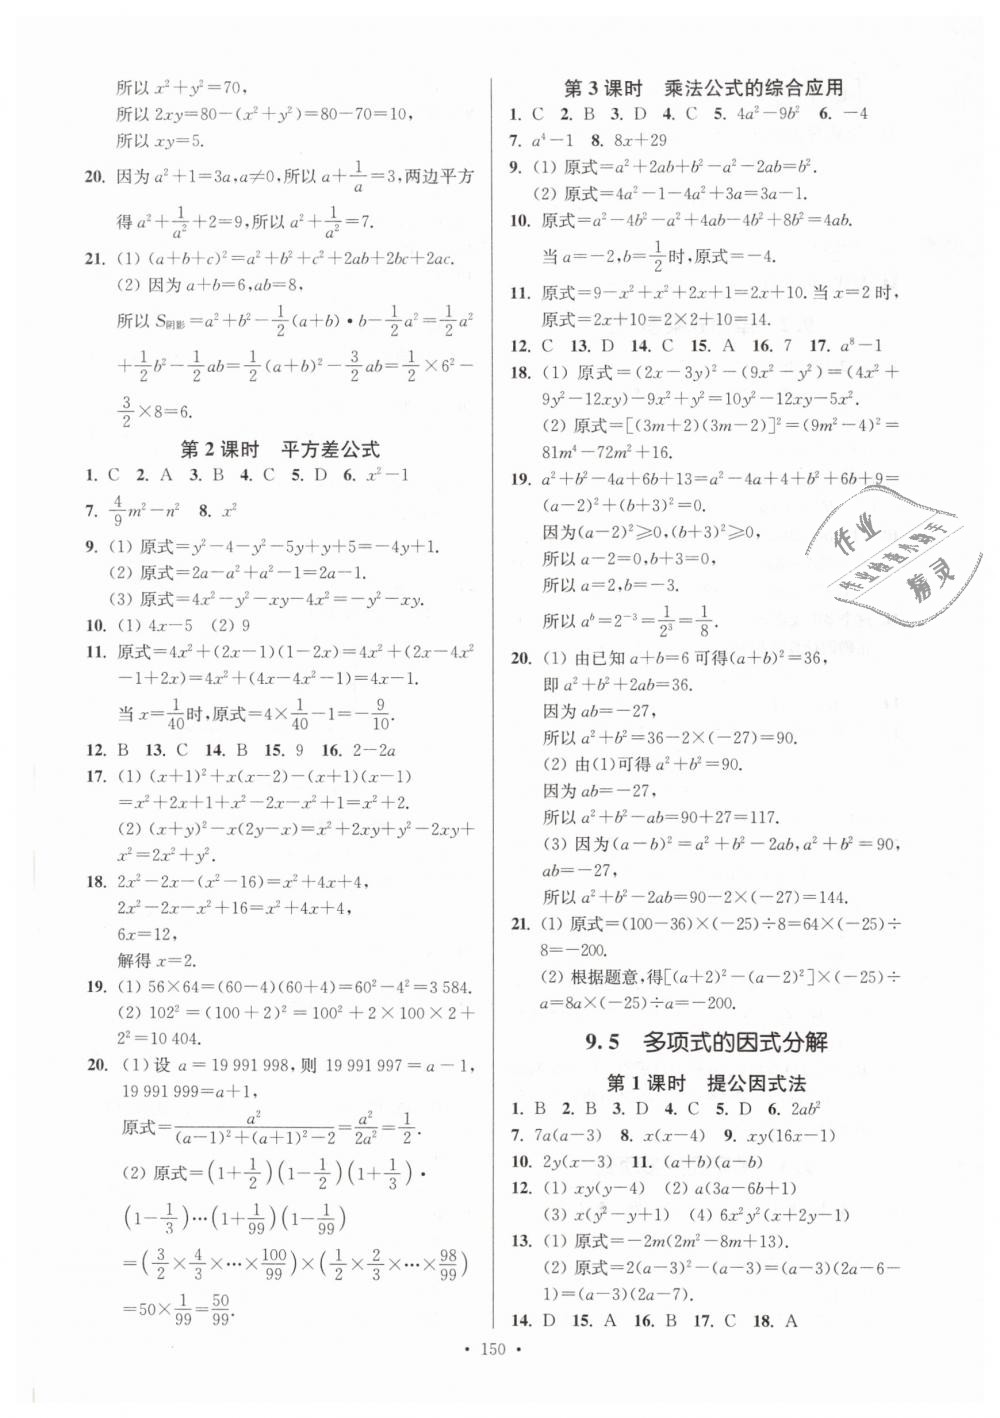 所以 x²+y²=70,
所以 2xy=80-(x²+y²)=80-70=10,
所以 xy=5.
20. 因为 a²+1=3a,a≠0,所以 a+1/a=3,两边平方
得 a²+1/a²+2=9,所以 a²+1/a²=7.
21. (1) (a+b+c)²=a²+b²+c²+2ab+2bc+2ac.
(2) 因为 a+b=6,ab=8,
所以 S阴影=a²+b²-1/2(a+b)·b-1/2a²=1/2a²
+1/2b²-1/2ab=1/2(a+b)²-3/2ab=1/2×6²-
3/2×8=6.
第 2 课时 平方差公式
1. C 2. A 3. B 4. C 5. D 6. x²-1
7. 4/9m²-n² 8. x²
9. (1) 原式=y²-4-y²-5y+y+5=-4y+1.
(2) 原式=2a-a²+a²-1=2a-1.
(3) 原式=4x²-y²-xy-4x²=-y²-xy.
10. (1) 4x-5 (2) 9
11. 原式=4x²+(2x-1)(1-2x)=4x²+(2x-4x²
-1+2x)=4x²+(4x-4x²-1)=4x-1.
当 x=1/40时,原式=4×1/40-1=-9/10.
12. B 13. C 14. B 15. 9 16. 2-2a
17. (1) (x+1)²+x(x-2)-(x+1)(x-1)
=x²+2x+1+x²-2x-x²+1=x²+2.
(2) (x+y)²-x(2y-x)=x²+2xy+y²-2xy+
x²=2x²+y².
18. 2x²-2x-(x²-16)=x²+4x+4,
2x²-2x-x²+16=x²+4x+4,
6x=12,
解得 x=2.
19. (1) 56×64=(60-4)(60+4)=60²-4²=3 584.
(2) 102²=(100+2)²=100²+2×100×2+
2²=10 404.
20. (1) 设 a=19 991 998,则 19 991 997=a-1,
19 991 999=a+1,
原式=a²/((a-1)²+(a+1)²-2)=a²/2a²=1/2.
(2) 原式=(1+1/2)(1-1/2)(1+1/3)·
(1-1/3)…(1+1/99)(1-1/99)
=(3/2×4/3×…×100/99)×(1/2×2/3×…×98/99)
=50×1/99=50/99.
第 3 课时 乘法公式的综合应用
1. C 2. B 3. D 4. C 5. 4a²-9b² 6. -4
7. a⁴-1 8. 8x+29
9. (1) 原式=a²+2ab+b²-a²-2ab=b².
(2) 原式=4a²-1-4a²+3a=3a-1.
10. 原式=a²-4b²-a²+4ab-4b²+8b²=4ab.
当 a=-2,b=1/2时,原式=-4.
11. 原式=9-x²+x²+2x+1=2x+10. 当 x=2 时,
原式=2x+10=2×2+10=14.
12. C 13. D 14. C 15. A 16. 7 17. a⁸-1
18. (1) 原式=(2x-3y)²-(9x²-y²)=(4x²+
9y²-12xy)-9x²+y²=10y²-12xy-5x².
(2) 原式=[(3m+2)(3m-2)]²=(9m²-4)²=
81m⁴-72m²+16.
19. a²+b²-4a+6b+13=a²-4a+4+b²+6b+9=
(a-2)²+(b+3)²=0.
因为(a-2)²≥0,(b+3)²≥0,
所以 a-2=0,b+3=0,
所以 a=2,b=-3.
所以 aᵇ=2⁻³=1/2³=1/8.
20. (1) 由已知 a+b=6 可得(a+b)²=36,
即 a²+b²+2ab=36.
因为 ab=-27,
所以 a²+b²=36-2×(-27)=90.
(2) 由(1)可得 a²+b²=90.
因为 ab=-27,
所以 a²+b²-ab=90+27=117.
(3) 因为(a-b)²=a²+b²-2ab,a²+b²=90,
ab=-27,
所以 a²+b²-2ab=90-2×(-27)=144.
21. (1) 原式=(100-36)×(-25)÷8=64×(-25)÷
8=-200.
(2) 根据题意,得[(a+2)²-(a-2)²]×(-25)÷
a=8a×(-25)÷a=-200.
9.5 多项式的因式分解
第 1 课时 提公因式法
1. B 2. B 3. D 4. C 5. D 6. 2ab²
7. 7a(a-3) 8. x(x-4) 9. xy(16x-1)
10. 2y(x-3) 11. (a+b)(a-b)
12. (1) xy(y-4) (2) a(3a-6b+1)
(3) x(y²-y+1) (4) 6x²y²(x+2y-1)
13. (1) 原式=-2m(2m²-8m+13).
(2) 原式=2(a-3)²-(a-3)=(a-3)(2a-6-
1)=(a-3)(2a-7).
14. D 15. A 16. B 17. C 18. A
作业
作业检查小助手
精灵
· 150 ·